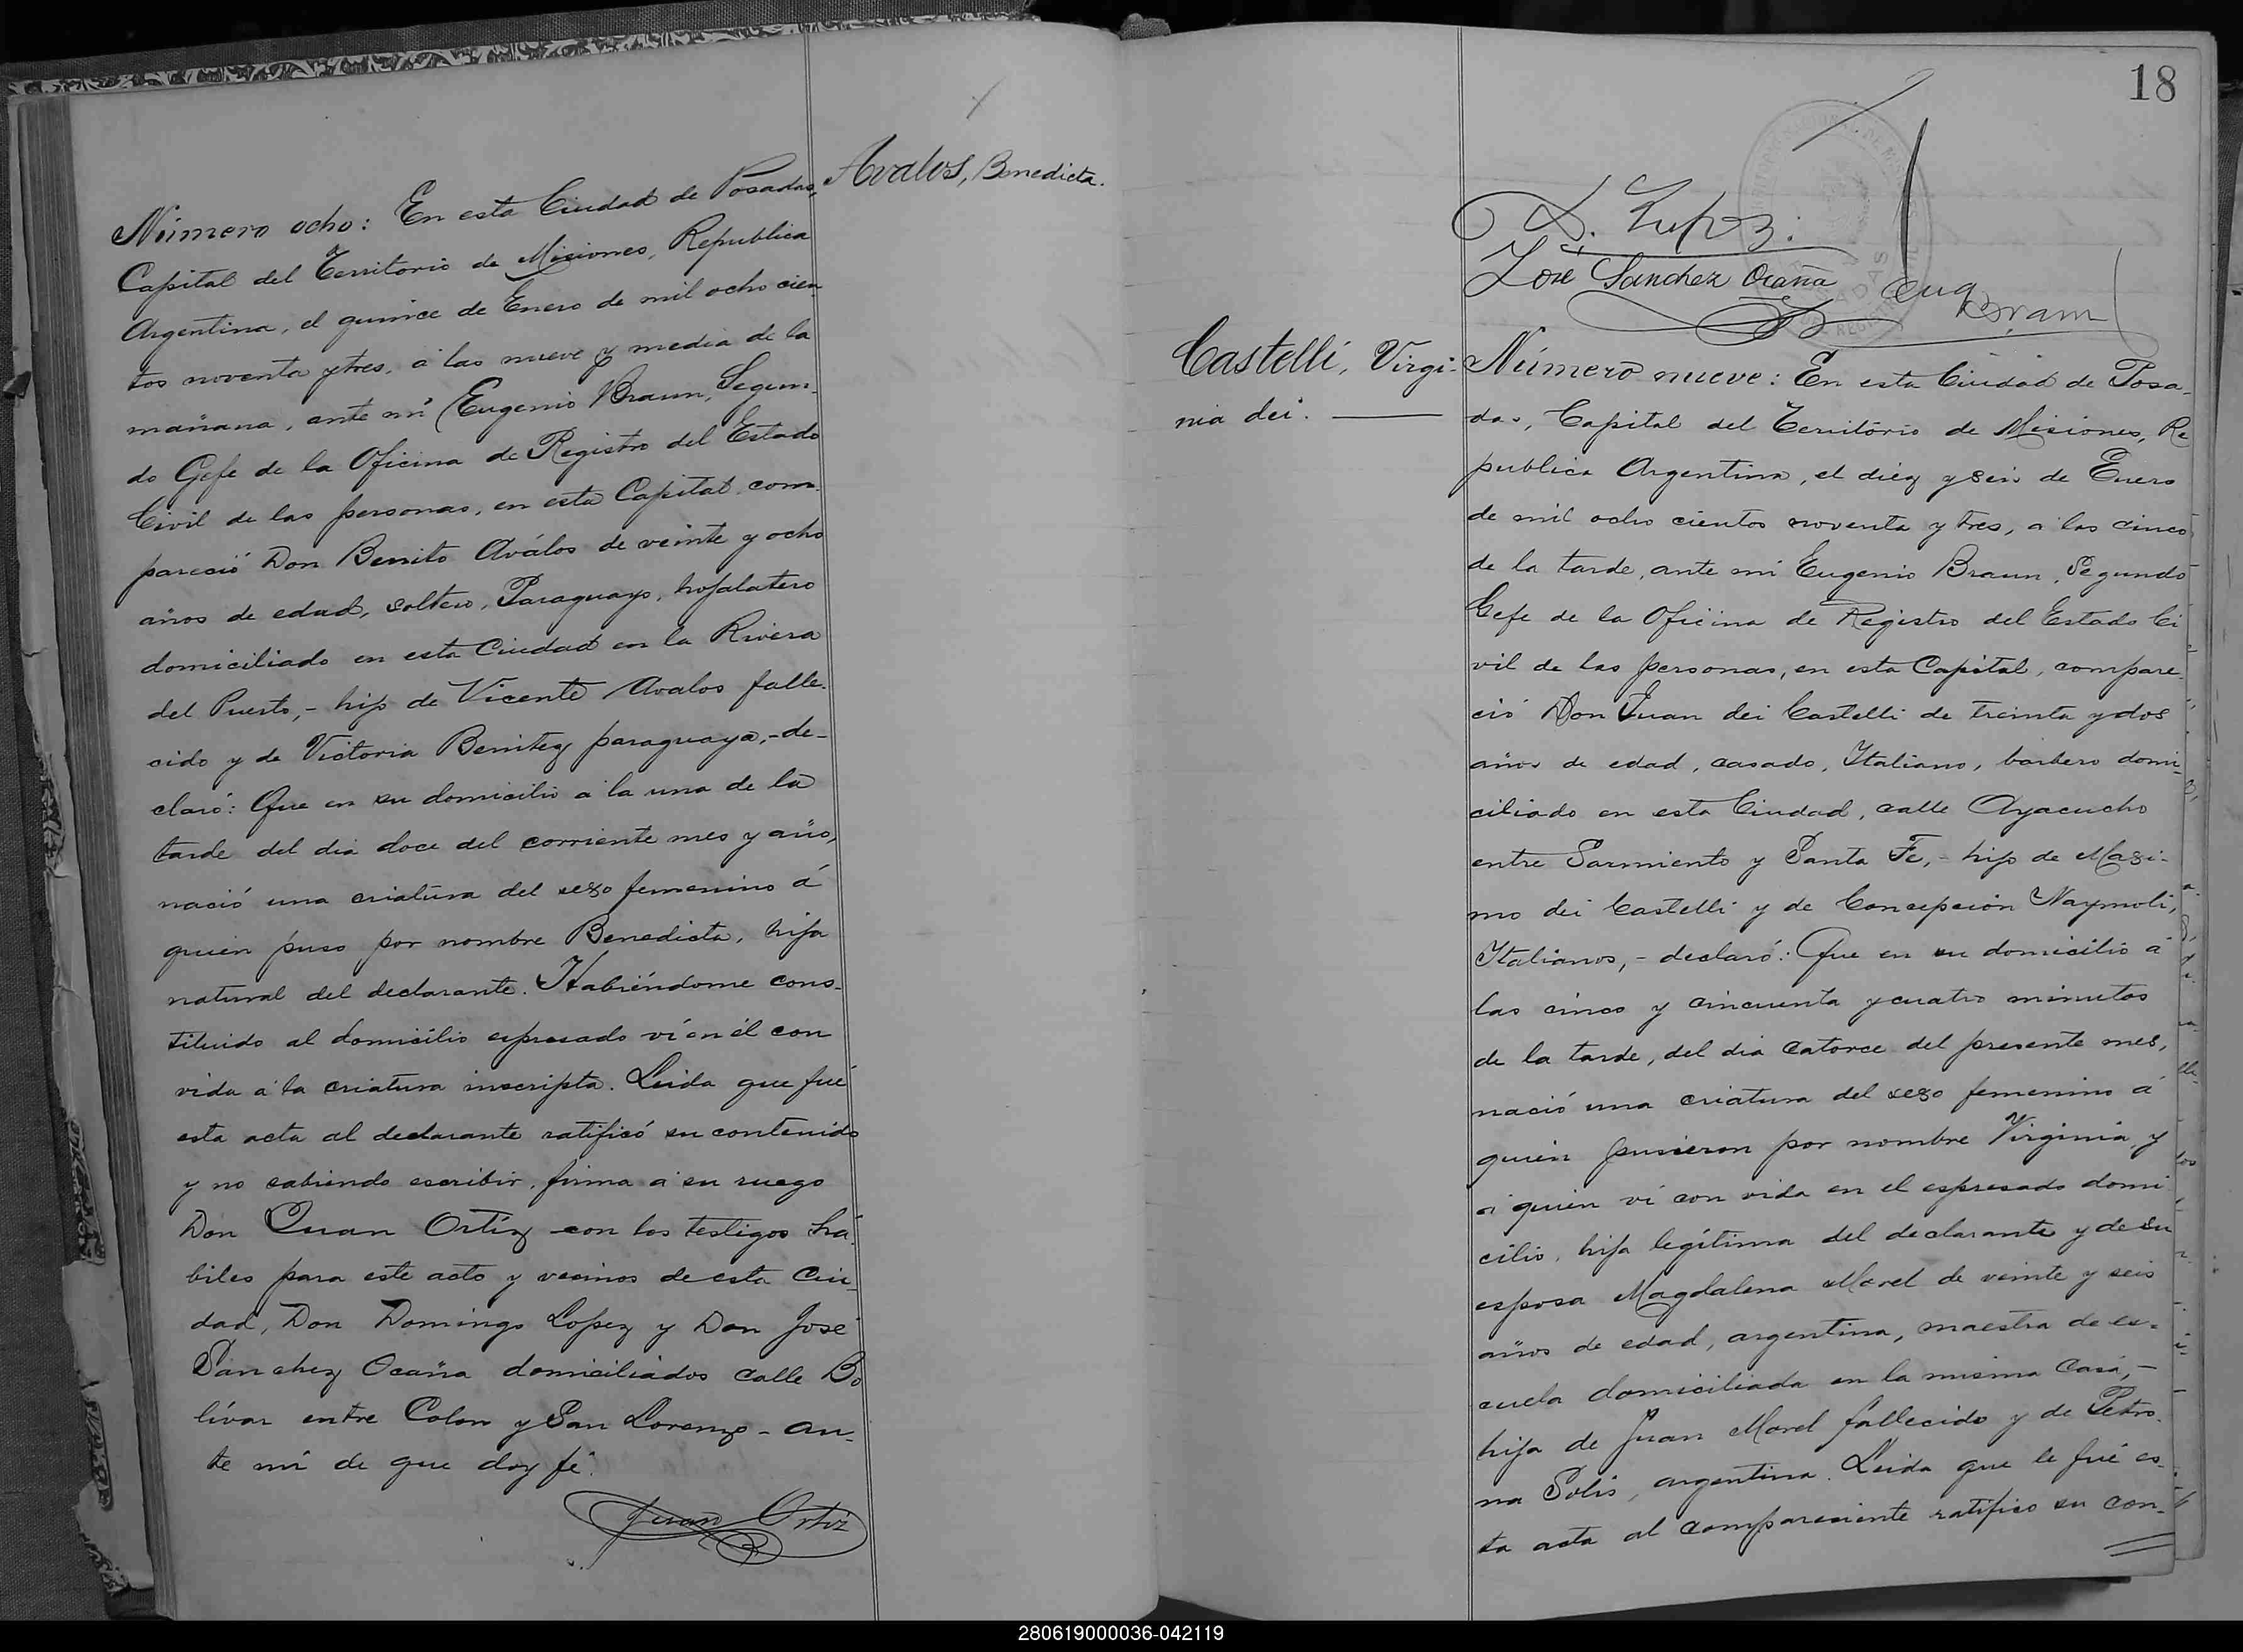 Avalos, Benedicta.
Número ocho: En esta Ciudad de Posadas,
Capital del Territorio de Misiones, Republica
Argentina, el quince de Enero de mil ocho cien
tos noventa y tres, á las nueve y media de la
mañana, ante mí Eugenio Braun, Segun-
do Gefe de la Oficina de Registro del Estado
Civil de las personas, en esta Capital com-
pareció Don Benito Aválos de veinte y ocho
años de edad, soltero, Paraguayo, hojalatero
domiciliado en esta Ciudad en la Rivera
del Puerto,- hijo de Vicente Avalos falle-
cido y de Victoria Benitez paraguaya,- de-
claró: Que en su domicilio á la una de la
tarde del dia doce del corriente mes y año,
nació una criatura del sexo femenino á
quien puso por nombre Benedicta, hija
natural del declarante. Habiéndome cons-
tituido al domicilio espresado ví en él con
vida á la criatura inscripta. Leida que fué
esta acta al declarante ratificó su contenido
y no sabiendo escribir, firma á su ruego
Don Juan Ortíz con los testigos há-
biles para este acto y vecinos de esta Ciu-
dad, Don Domingo Lopez y Don José
Sanchez Ocaña domiciliados calle Bo
lívar entre Colon y San Lorenzo - an-
te mí de que doy fé.
Juan Ortiz
18
D. Lopez.
José Sanchez Ocaña
Eug Braun
Castelli, Virgi-
nia dei.
Número nueve: En esta Ciudad de Posa-
das, Capital del Territorio de Misiones, Re
publica Argentina, el diez y seis de Enero
de mil ocho cientos noventa y tres, á las cinco
de la tarde, ante mí Eugenio Braun, Segundo
Gefe de la Oficina de Registro del Estado Ci
vil de las personas, en esta Capital, compare-
ció Don Juan dei Castelli de treinta y dos
años de edad, casado, Italiano, barbero domi-
ciliado en esta Ciudad, calle Ayacucho
entre Sarmiento y Santa Fe,- hijo de Maxi-
mo dei Castelli y de Concepcion Naymoli,
Italianos,- declaró: Que en su domicilio á
las cinco y cincuenta y cuatro minutos
de la tarde, del dia catorce del presente mes,
nació una criatura del sexo femenino á
quien pusieron por nombre Virginia, y
á quien ví con vida en el espresado domi
cilio, hija legítima del declarante y de su
esposa Magdalena Morel de veinte y seis
años de edad, argentina, maestra de es-
cuela domiciliada en la misma Casa,-
hija de Juan Morel fallecido y de Petro-
na Solis, argentina. Leida que le fué es-
ta acta al compareciente ratificó su con-
280619000036-042119